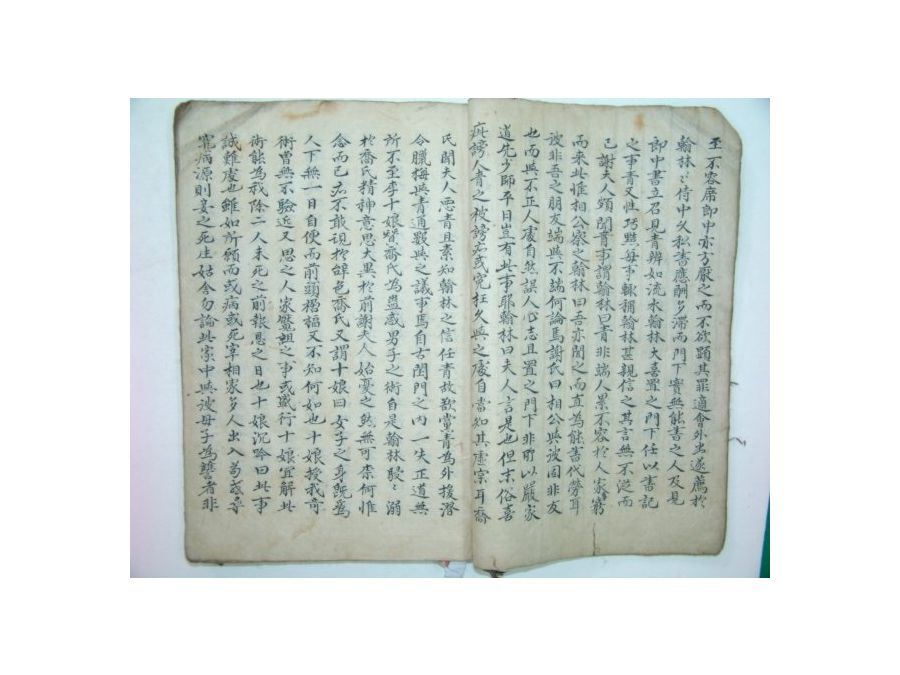 至不容席郎中亦方厭之而不欲顯其罪適會外出遂薦於
翰林〻〻侍中久私書應酬多滯而門下實無能書之人及見
郎中書立召見青辨如流水翰林大喜置之門下任以書記
之事青又性巧黠每事輒稱翰林甚親信之其言無不從而
已謝夫人頗聞青事謂翰林曰青非端人累不容於人家窮
而來此惟相公察之翰林曰吾亦聞之而直為能書代勞耳
彼非吾之朋友端與不端何論焉謝氏曰相公與彼固非友
也而與不正人處自然誤人心志且置之門下非所以嚴家
道先少師平日豈有此事耶翰林曰夫人言是也但末俗喜
訛謗人青之被謗若或冤枉久與之處自當知其虛宗耳喬
氏聞夫人惡青且素知翰林之信任青故欲黨青為外援潛
令臘梅與青通數與之議事焉自古閨門之內一失正道無
所不至李十娘贊喬氏為蠱惑男子之術自是翰林駸〻溺
於喬氏精神意思大異於前謝夫人始憂之然無可柰何惟
念而已亦不敢現於辭色喬氏又謂十娘曰女子之身旣為
人下無一日自便而前頭禍福又不知何如也十娘授我奇
術曾無不驗近又思之人家魘蛆之事或盛行十娘宜解此
術能為我除二人未死之前報恩之日也十娘沉唫曰此事
誠難處也雖如所願而或病或死宰相家多人出入苟或尋
覓病源則妾之死生姑舍勿論此家中與彼母子為讐者非